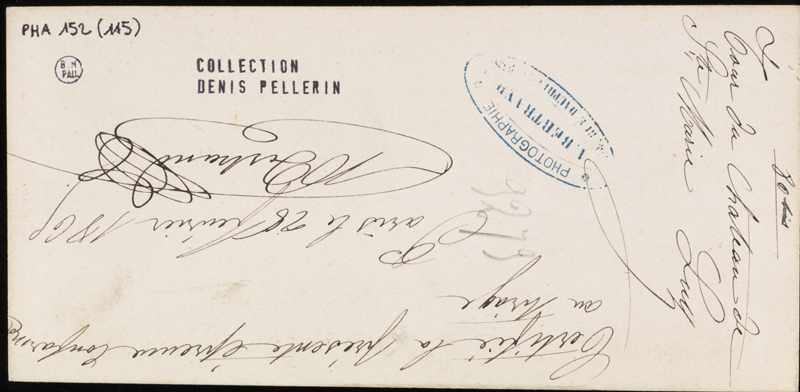 PHA 152 (115)
B.N
PAU
COLLECTION
DENIS PELLERIN
PHOTOGRAPHIE
A. BERTRAND
RUE DAUPHINE
Certifié la présente épreuve conforme
au tirage
Paris le 28 février 1860
Bertrand
Cour du Château de
Ste Marie Luz